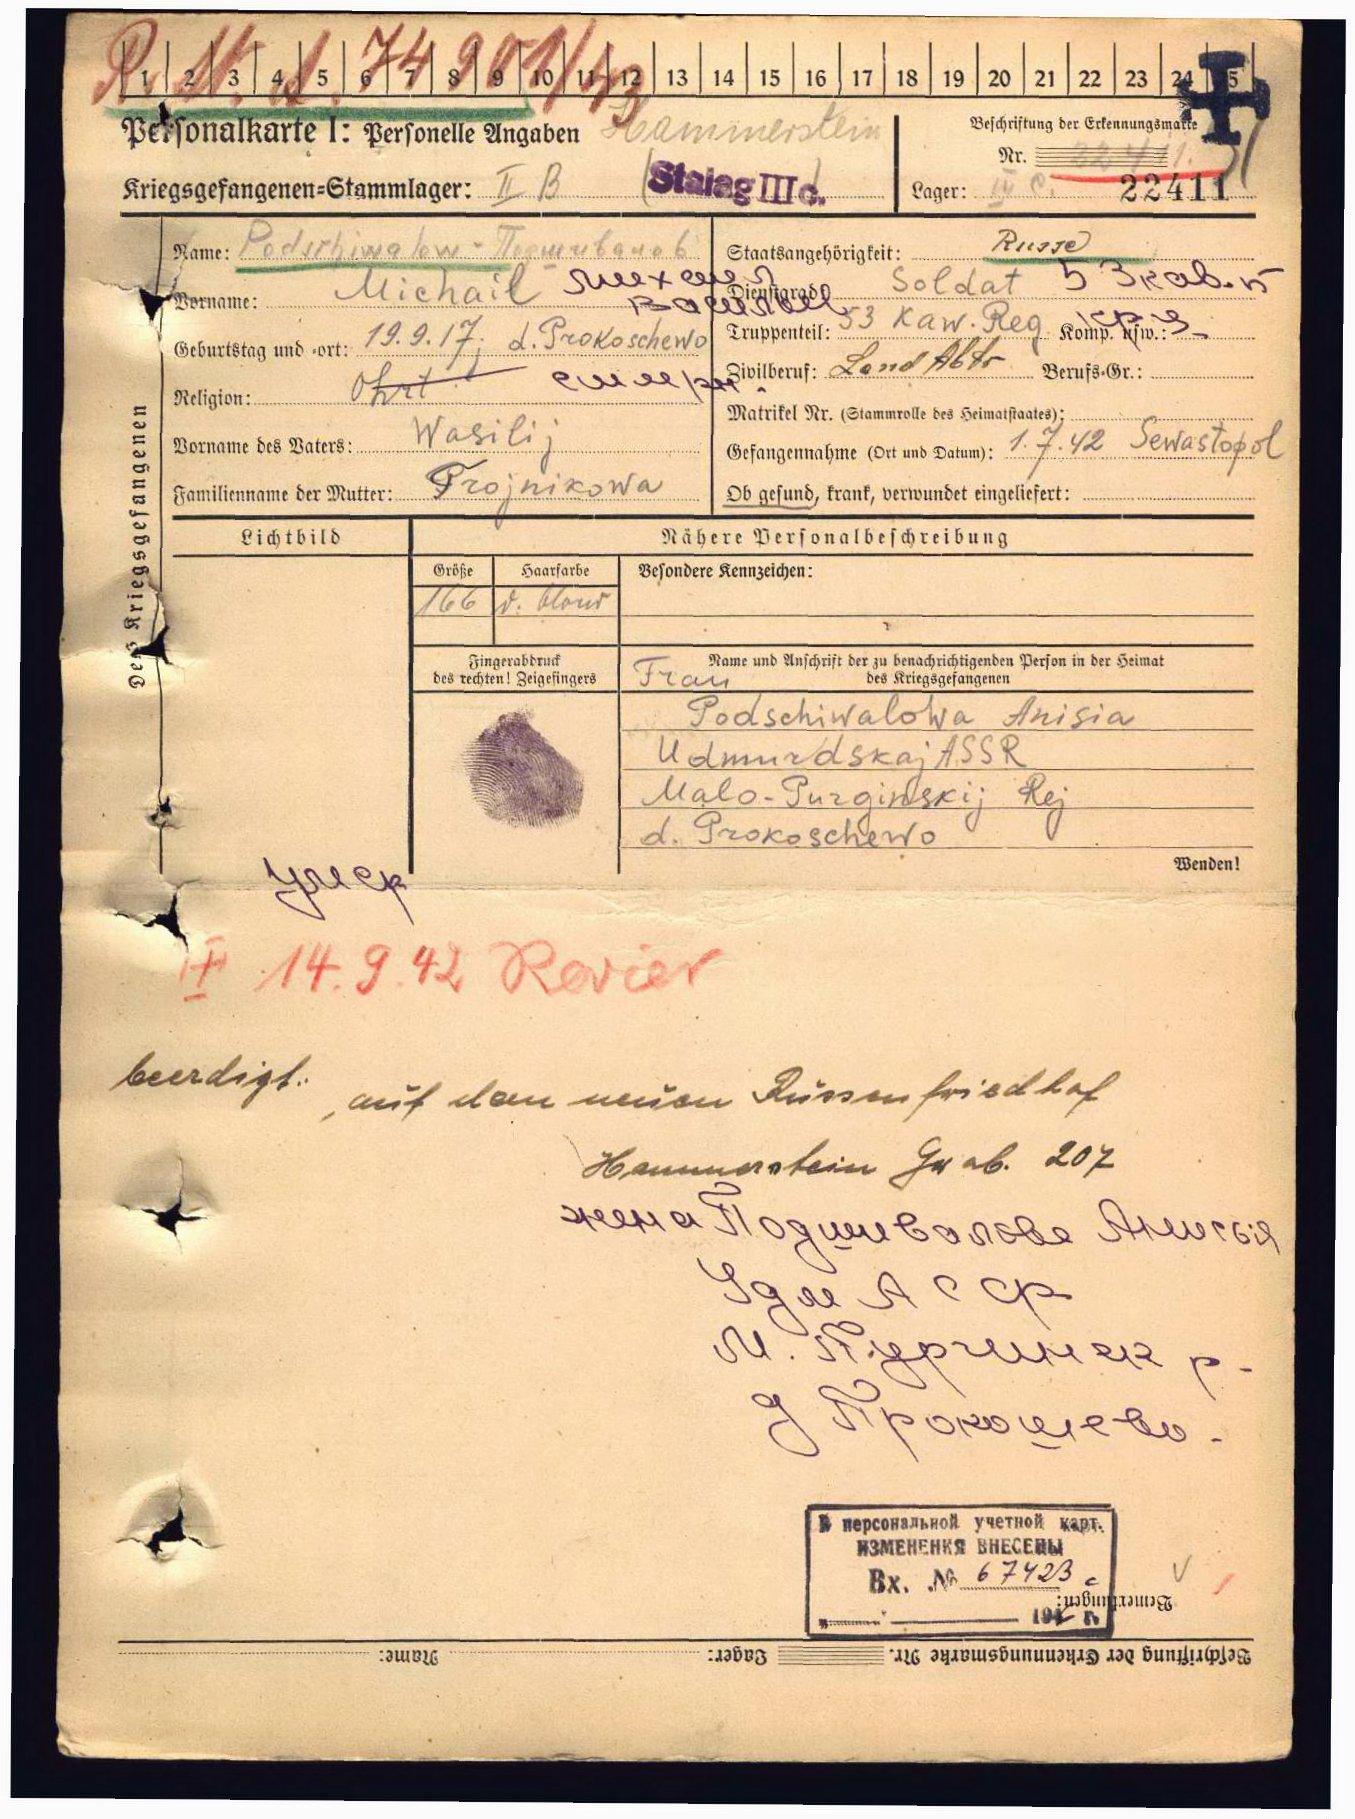 1 2 3 4 5 6 7 8 9 10 11 12 13 14 15 16 17 18 19 20 21 22 23 24 25
Personalkarte I: Personelle Angaben Hammerstein
Beschriftung der Erkennungsmarke
Nr. 22411
Kriegsgefangenen-Stammlager: II B Stalag III c.
Lager: 22411
Des Kriegsgefangenen
Name: Podschiwalow - Подшивалов
Vorname: Michail Михаил
Васильев
Geburtstag und -ort: 19.9.17; d. Prokoschewo
Religion:
Vorname des Vaters: Wasilij
Familienname der Mutter: Trojnikowa
Staatsangehörigkeit: Russe
Dienstgrad: Soldat 53 кав. п
Truppenteil: 53 Kaw. Reg Komp. usw.:
Zivilberuf: Land Berufs-Gr.:
Matrikel Nr. (Stammrolle des Heimatstaates):
Gefangennahme (Ort und Datum): 1.7.42 Sewastopol
Ob gesund, krank, verwundet eingeliefert:
Lichtbild
Nähere Personalbeschreibung
Größe Haarfarbe Besondere Kennzeichen:
166 d. blond
Fingerabdruck
des rechten! Zeigefingers
Name und Anschrift der zu benachrichtigenden Person in der Heimat
des Kriegsgefangenen
Frau
Podschiwalowa Anisia
Udmurdskaj ASSR
Malo-Purginskij Rej
d. Prokoschewo
Wenden!
умер
14.9.42 Revier
beerdigt:
auf dem neuen Russenfriedhof
Hammerstein Grab. 207
жена Подшивалова Анисья
Удм АССР
М. Пургинск р-
д Прокошево-
В персональной учетной карт.
ИЗМЕНЕНИЯ ВНЕСЕНЫ
Вх. № 67423 с
194 г.
Bemerkungen:
Beschriftung der Erkennungsmarke Nr. Lager: Name: